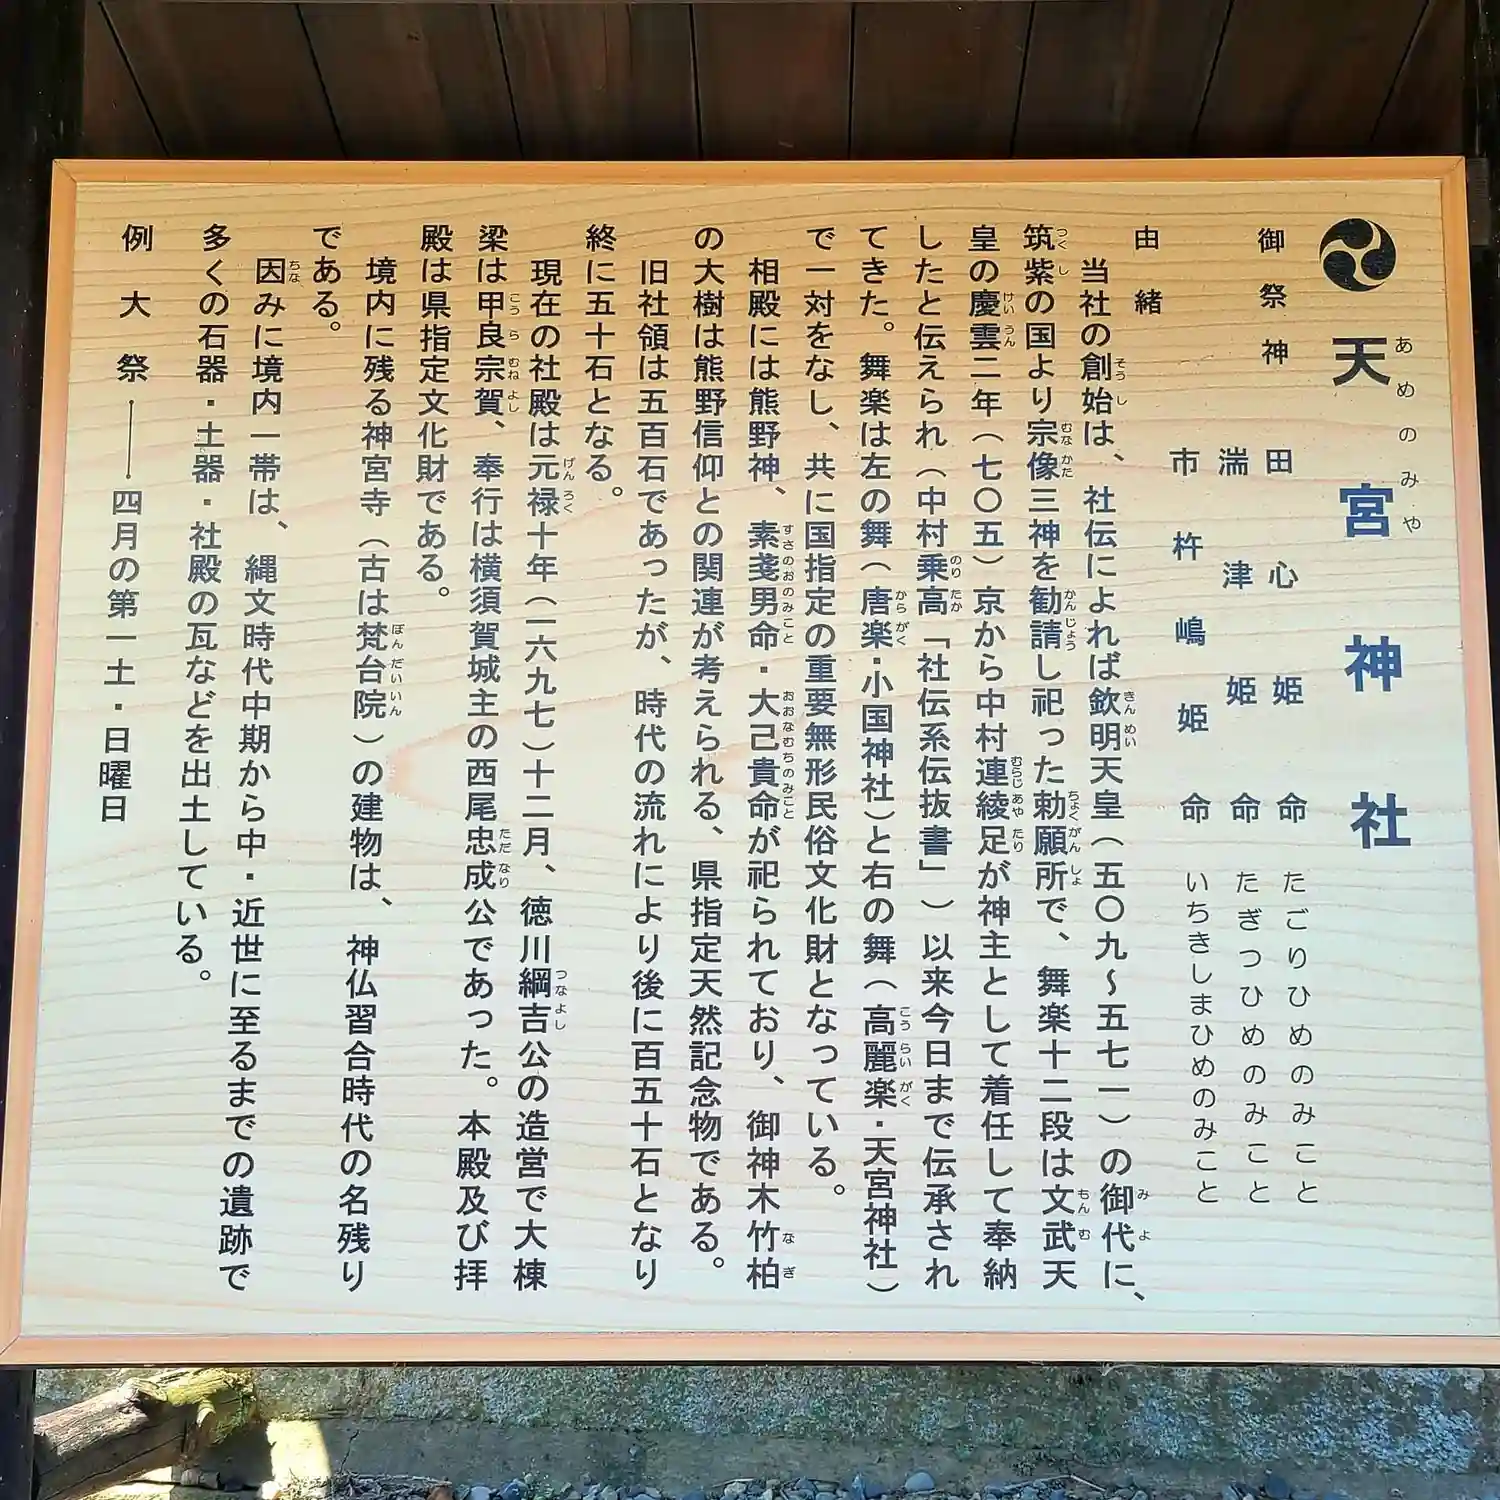 天宮神社
あめのみや
御祭神
田心姫命 たごりひめのみこと
湍津姫命 たぎつひめのみこと
市杵嶋姫命 いちきしまひめのみこと
由緒
当社の創始は、社伝によれば欽明天皇(五〇九~五七一)の御代に、
筑紫の国より宗像三神を勧請し祀った勅願所で、舞楽十二段は文武天
皇の慶雲二年(七〇五)京から中村連綾足が神主として着任して奉納
したと伝えられ(中村乗高「社伝系伝抜書」)以来今日まで伝承され
てきた。舞楽は左の舞(唐楽・小国神社)と右の舞(高麗楽・天宮神社)
で一対をなし、共に国指定の重要無形民俗文化財となっている。
相殿には熊野神、素戔男命・大己貴命が祀られており、御神木竹柏
の大樹は熊野信仰との関連が考えられる、県指定天然記念物である。
旧社領は五百石であったが、時代の流れにより後に百五十石となり
終に五十石となる。
現在の社殿は元禄十年(一六九七)十二月、徳川綱吉公の造営で大棟
梁は甲良宗賀、奉行は横須賀城主の西尾忠成公であった。本殿及び拝
殿は県指定文化財である。
境内に残る神宮寺(古は梵台院)の建物は、神仏習合時代の名残り
である。
因みに境内一帯は、縄文時代中期から中・近世に至るまでの遺跡で
多くの石器・土器・社殿の瓦などを出土している。
例大祭――四月の第一土・日曜日